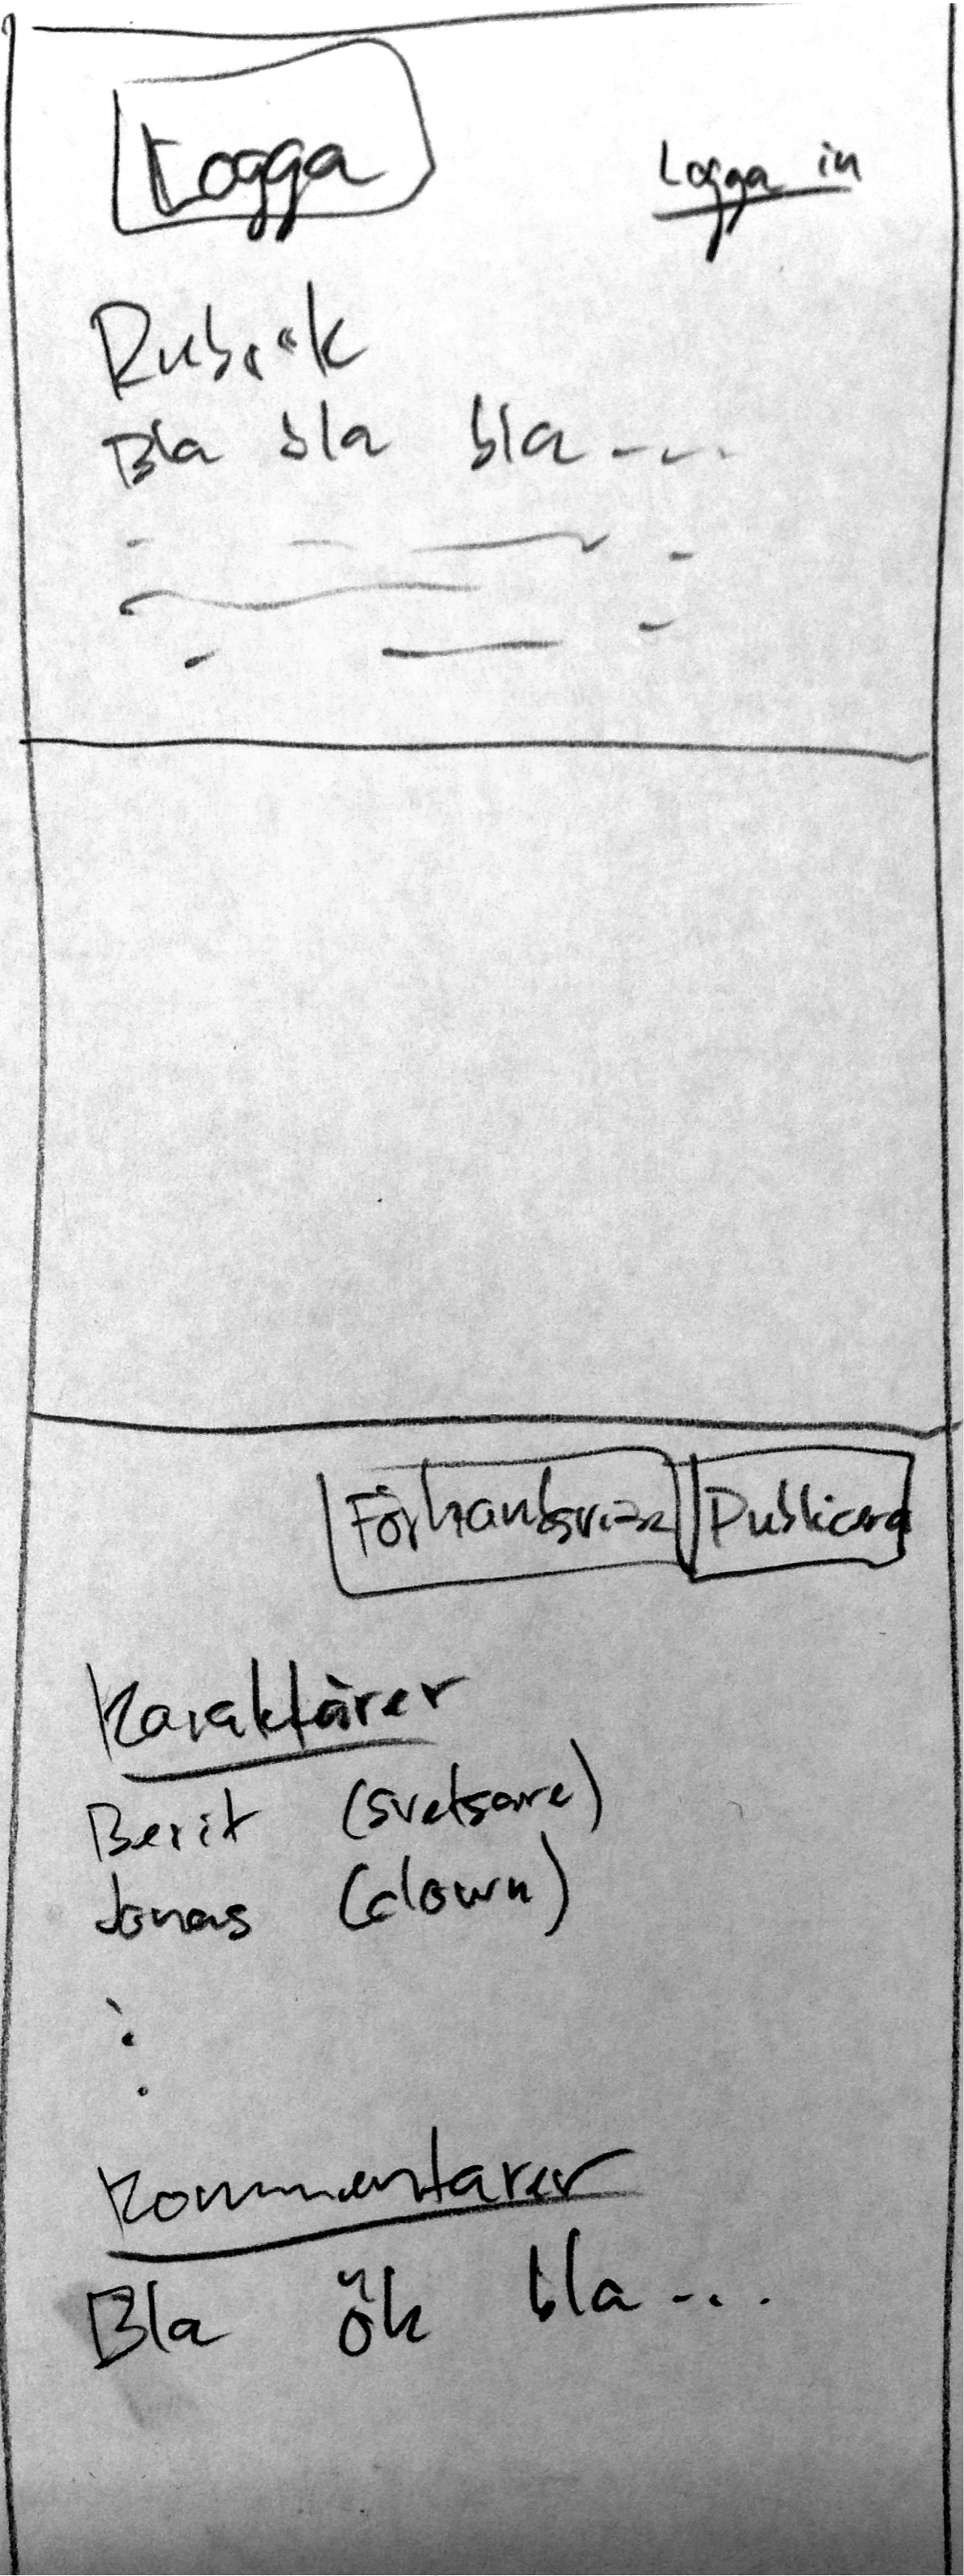 Logga
Logga in
Rubrik
Bla bla bla ---
Förhandsvisa Publicera
Karaktärer
Berit (svetsare)
Jonas (clown)
Kommentarer
Bla ök bla ...